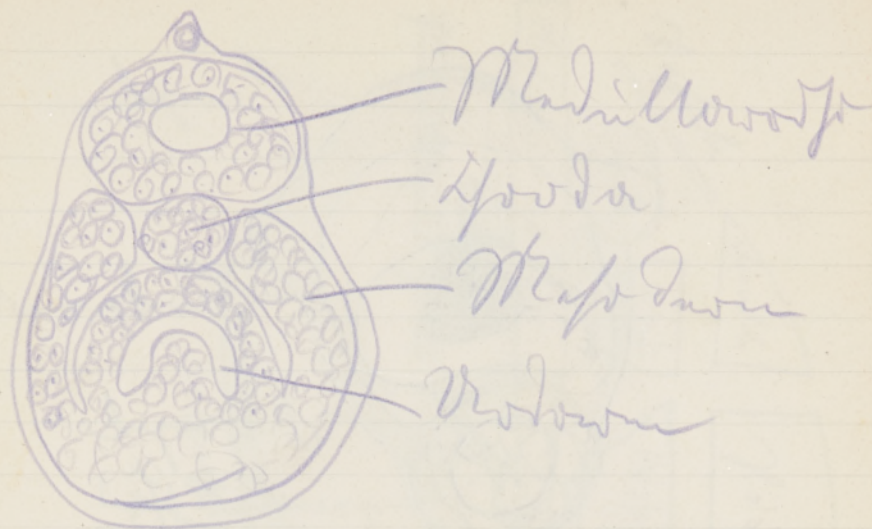 Medullarrohr
Chorda
Mesoderm
Urdarm